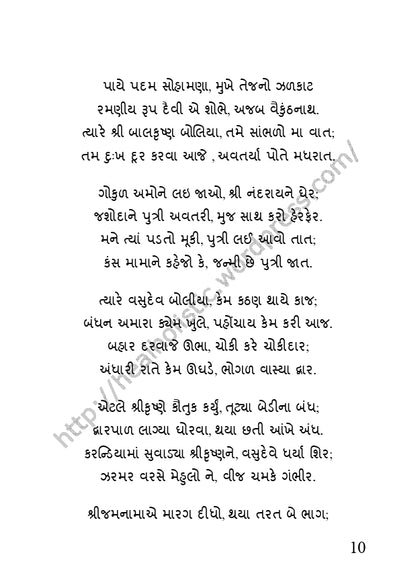 પાયે પદમ સોહામણા, મુખે તેજનો ઝળકાટ
રમણીય રૂપ દૈવી એ શોભે, અજબ વૈકુંઠનાથ.
ત્યારે શ્રી બાલકૃષ્ણ બોલિયા, તમે સાંભળો મા વાત;
તમ દુઃખ દૂર કરવા આજે , અવતર્યા પોતે મધરાત.
ગોકુળ અમોને લઇ જાઓ, શ્રી નંદરાયને ઘેર;
જશોદાને પુત્રી અવતરી, મુજ સાથ કરો હેરફેર.
મને ત્યાં પડતો મૂકી, પુત્રી લઈ આવો તાત;
કંસ મામાને કહેજો કે, જન્મી છે પુત્રી જાત.
ત્યારે વસુદેવ બોલીયા, કેમ કઠણ થાયે કાજ;
બંધન અમારા ક્યેમ ખુલે, પહોંચાય કેમ કરી આજ.
બહાર દરવાજે ઊભા, ચોકી કરે ચોકીદાર;
અંધારી રાતે કેમ ઊઘડે, ભોગળ વાસ્યા દ્વાર.
એટલે શ્રીકૃષ્ણે કૌતુક કર્યું, તૂટ્યા બેડીના બંધ;
દ્વારપાળ લાગ્યા ઘોરવા, થયા છતી આંખે અંધ.
કરન્ડિયામાં સુવાડ્યા શ્રીકૃષ્ણને, વસુદેવે ધર્યા શિર;
ઝરમર વરસે મેહુલો ને, વીજ ચમકે ગંભીર.
શ્રીજમનામાએ મારગ દીધો, થયા તરત બે ભાગ;
10